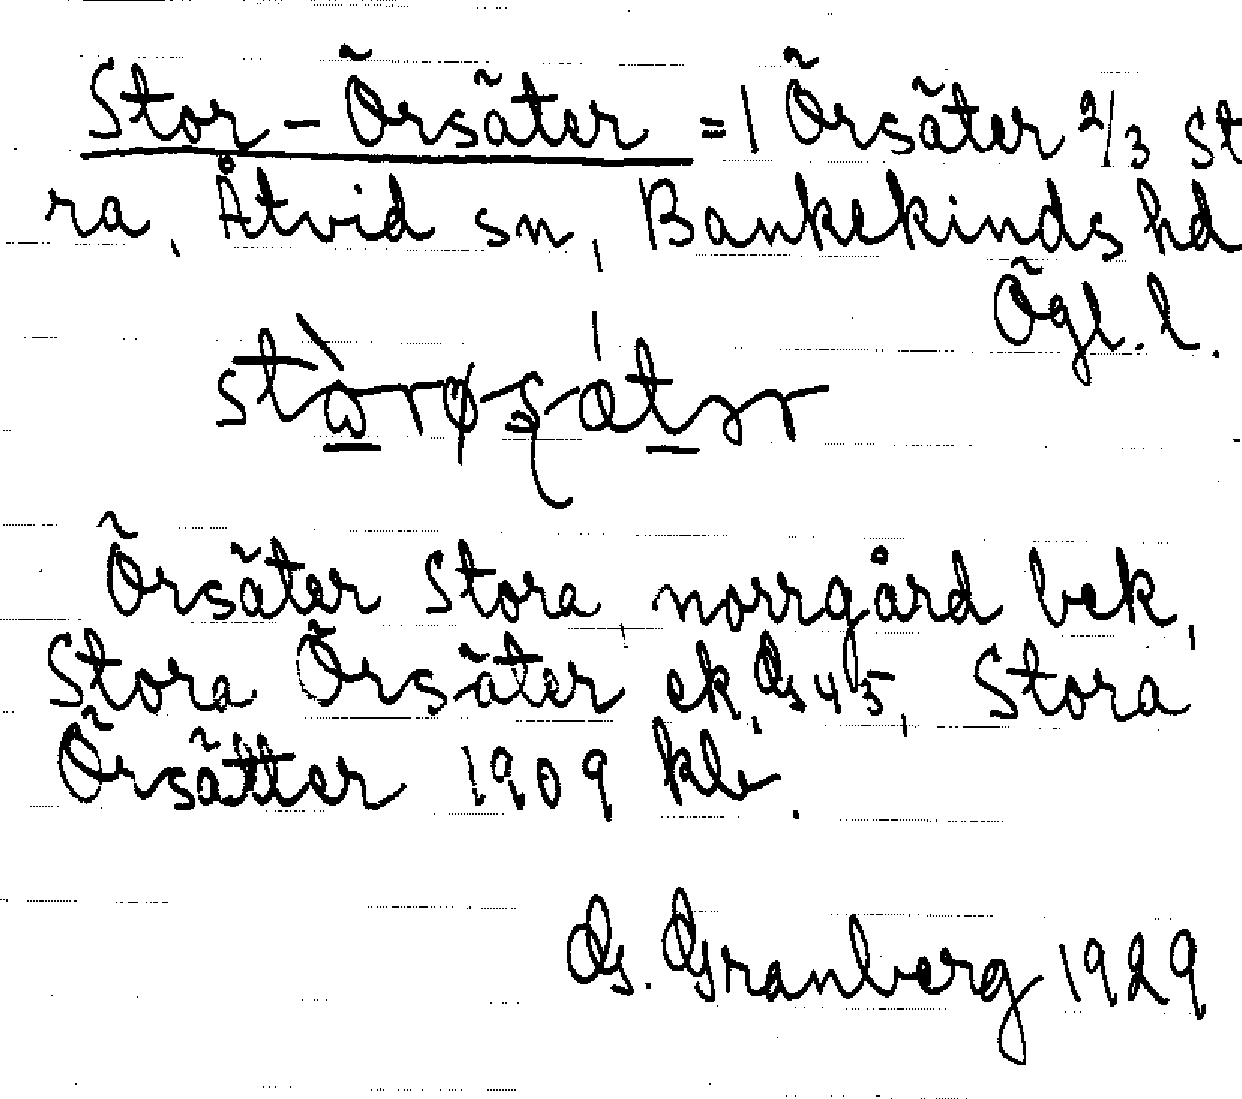 Stor-Örsäter = 1 Örsäter 2/3 st
ra, Åtvid sn, Bankekinds hd
Ögl. l.
Örsäter Stora norrgård bek,
Stora Örsäter ek. G 45, Stora
Örsätter 1909 kli.
G. Granberg 1929